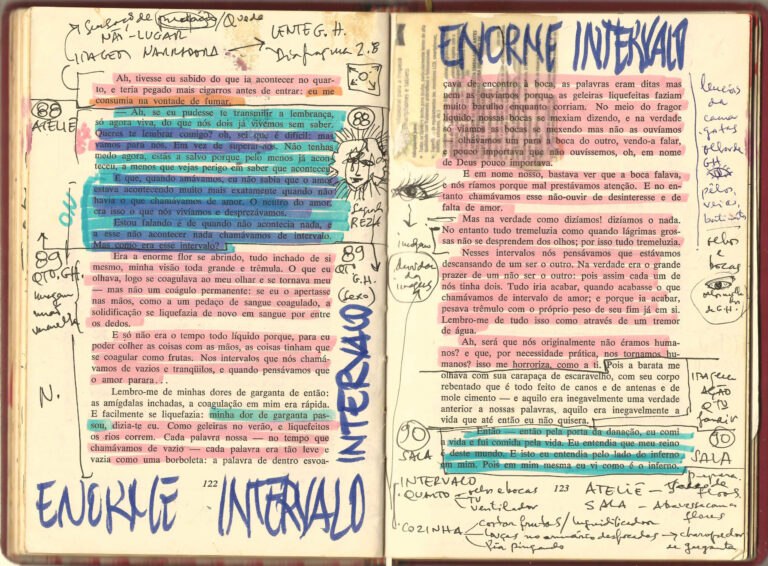 NÃO-LUGAR
LENTE G.H.
IMAGEM NARRADORA
Diafragma 2.8
Ah, tivesse eu sabido do que ia acontecer no quar-
to, e teria pegado mais cigarros antes de entrar: eu me
consumia na vontade de fumar.
— Ah, se eu pudesse te transmitir a lembrança,
só agora viva, do que nós dois já vivemos sem saber.
Queres te lembrar comigo? oh, sei que é difícil: mas
vamos para nós. Em vez de superar-nos. Não tenhas
medo agora, estás a salvo porque pelo menos já acon-
teceu, a menos que vejas perigo em saber que aconteceu.
É que, quando amávamos, eu não sabia que o amor
estava acontecendo muito mais exatamente quando não
havia o que chamávamos de amor. O neutro do amor,
era isso o que nós vivíamos e desprezávamos.
Estou falando é de quando não acontecia nada, e
a esse não acontecer nada chamávamos de intervalo.
Mas como era esse intervalo?
Era a enorme flor se abrindo, tudo inchado de si
mesmo, minha visão toda grande e trêmula. O que eu
olhava, logo se coagulava ao meu olhar e se tornava meu
— mas não um coágulo permanente: se eu o apertasse
nas mãos, como a um pedaço de sangue coagulado, a
solidificação se liquefazia de novo em sangue por entre
os dedos.
E só não era o tempo todo líquido porque, para eu
poder colher as coisas com as mãos, as coisas tinham que
se coagular como frutas. Nos intervalos que nós chamá-
vamos de vazios e tranqüilos, e quando pensávamos que
o amor parara. . .
Lembro-me de minhas dores de garganta de então:
as amígdalas inchadas, a coagulação em mim era rápida.
E facilmente se liquefazia: minha dor de garganta pas-
sou, dizia-te eu. Como geleiras no verão, e liquefeitos
os rios correm. Cada palavra nossa — no tempo que
chamávamos de vazio — cada palavra era tão leve e
vazia como uma borboleta: a palavra de dentro esvoa-
122
88
ATELIÊ
89
QTO, G.H.
N.
88
REZA
89
QTO
G.H.
(sexo)
INTERVALO
ENORME INTERVALO
ENORME INTERVALO
çava de encontro à boca, as palavras eram ditas mas
nem as ouvíamos porque as geleiras liquefeitas faziam
muito barulho enquanto corriam. No meio do fragor
líquido, nossas bocas se mexiam dizendo, e na verdade
só víamos as bocas se mexendo mas não as ouvíamos
— olhávamos um para a boca do outro, vendo-a falar,
e pouco importava que não ouvíssemos, oh, em nome
de Deus pouco importava.
E em nome nosso, bastava ver que a boca falava,
e nós ríamos porque mal prestávamos atenção. E no en-
tanto chamávamos esse não-ouvir de desinteresse e de
falta de amor.
Mas na verdade como dizíamos! dizíamos o nada.
No entanto tudo tremeluzia como quando lágrimas gros-
sas não se desprendem dos olhos; por isso tudo tremeluzia.
Nesses intervalos nós pensávamos que estávamos
descansando de um ser o outro. Na verdade era o grande
prazer de um não ser o outro: pois assim cada um de
nós tinha dois. Tudo iria acabar, quando acabasse o que
chamávamos de intervalo de amor; e porque ia acabar,
pesava trêmulo com o próprio peso de seu fim já em si.
Lembro-me de tudo isso como através de um tremor
de água.
Ah, será que nós originalmente não éramos huma-
nos? e que, por necessidade prática, nos tornamos hu-
manos? isso me horroriza, como a ti. Pois a barata me
olhava com sua carapaça de escaravelho, com seu corpo
rebentado que é todo feito de canos e de antenas e de
mole cimento — e aquilo era inegavelmente uma verdade
anterior a nossas palavras, aquilo era inegavelmente a
vida que até então eu não quisera.
— Então — então pela porta da danação, eu comi
a vida e fui comida pela vida. Eu entendia que meu reino
é deste mundo. E isto eu entendia pelo lado do inferno
em mim. Pois em mim mesma eu vi como é o inferno.
123
pêlos,
bocas
de G.H.
90
SALA
90
SALA
INTERVALO
QUARTO
olhos e bocas
TV
ventilador
COZINHA
cortar frutas / liquidificador
pia pingando
ATELIÊ —
SALA —
flores